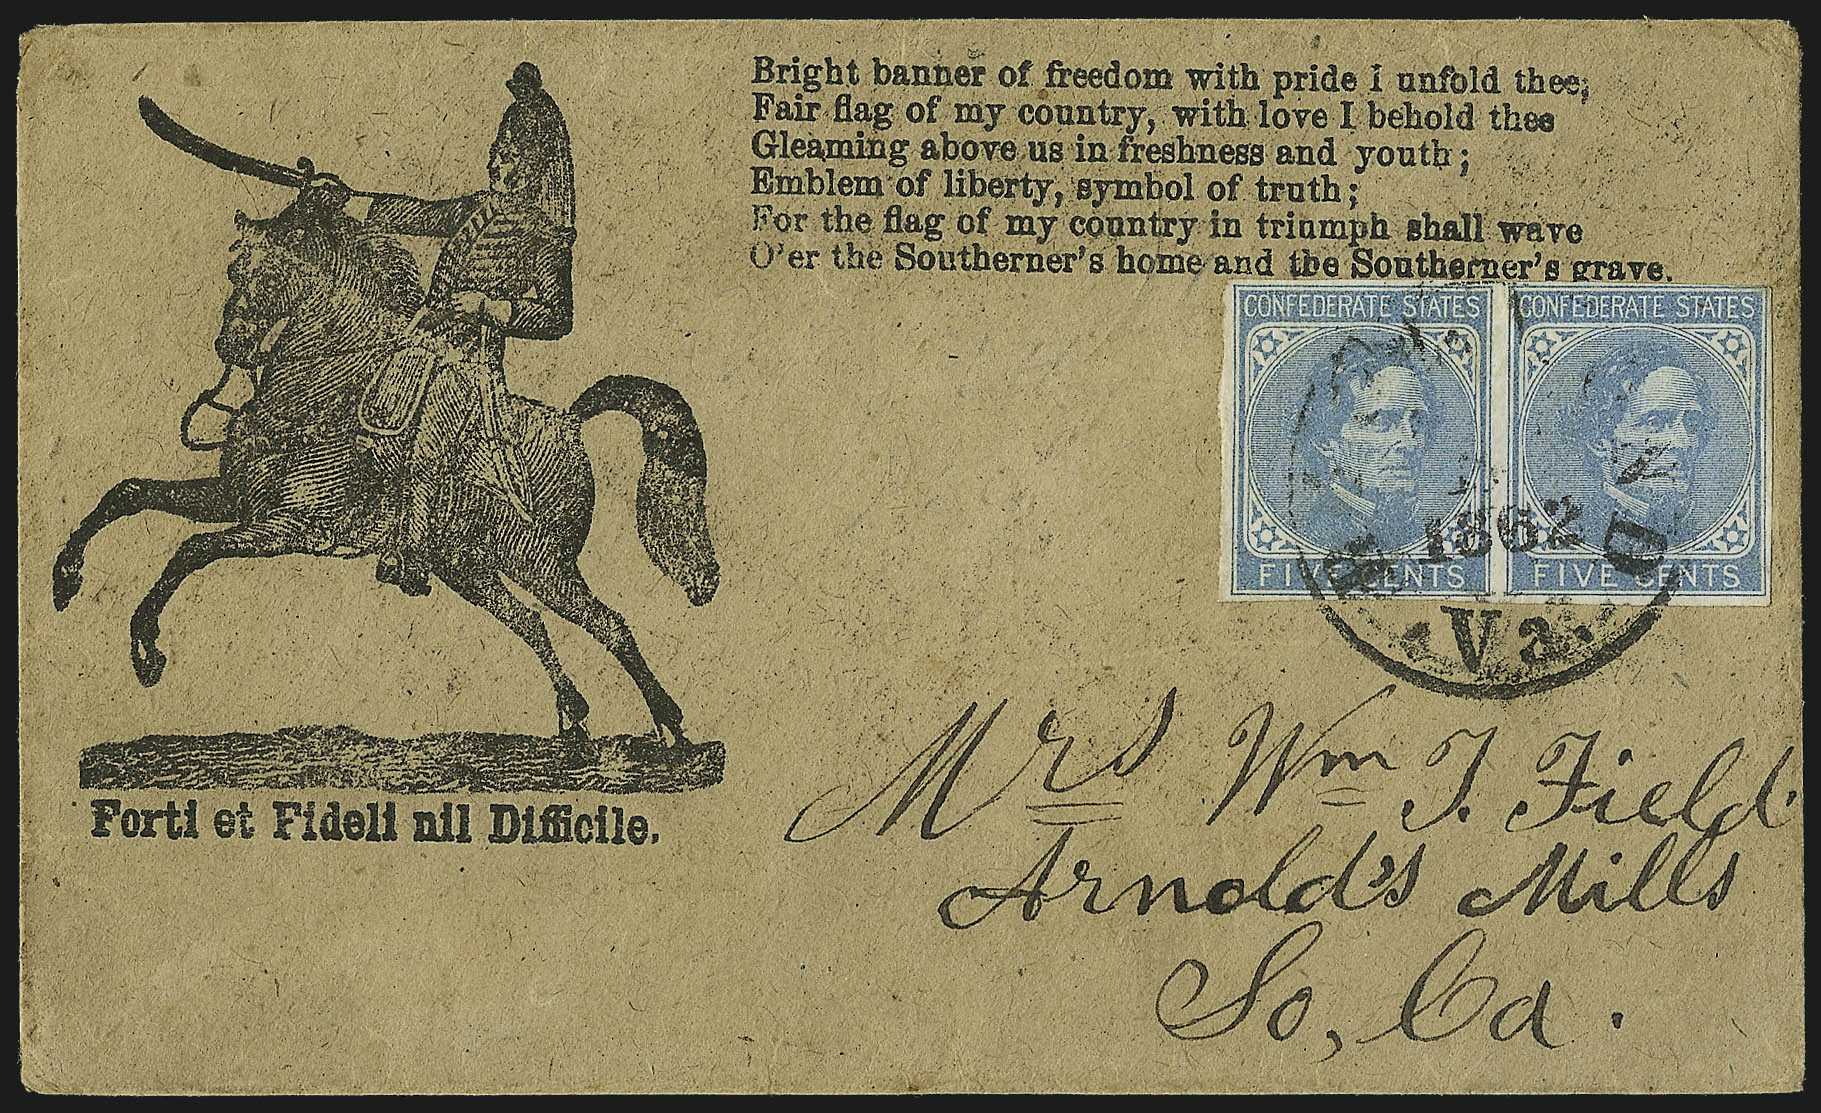 Bright banner of freedom with pride I unfold thee;
Fair flag of my country, with love I behold thee
Gleaming above us in freshness and youth;
Emblem of liberty, symbol of truth;
For the flag of my country in triumph shall wave
O'er the Southerner's home and the Southerner's grave.
CONFEDERATE STATES
FIVE CENTS
CONFEDERATE STATES
FIVE CENTS
1862
Va.
Forti et Fideli nil Difficile.
Mrs Wm T. Field.
Arnold's Mills
So, Ca.